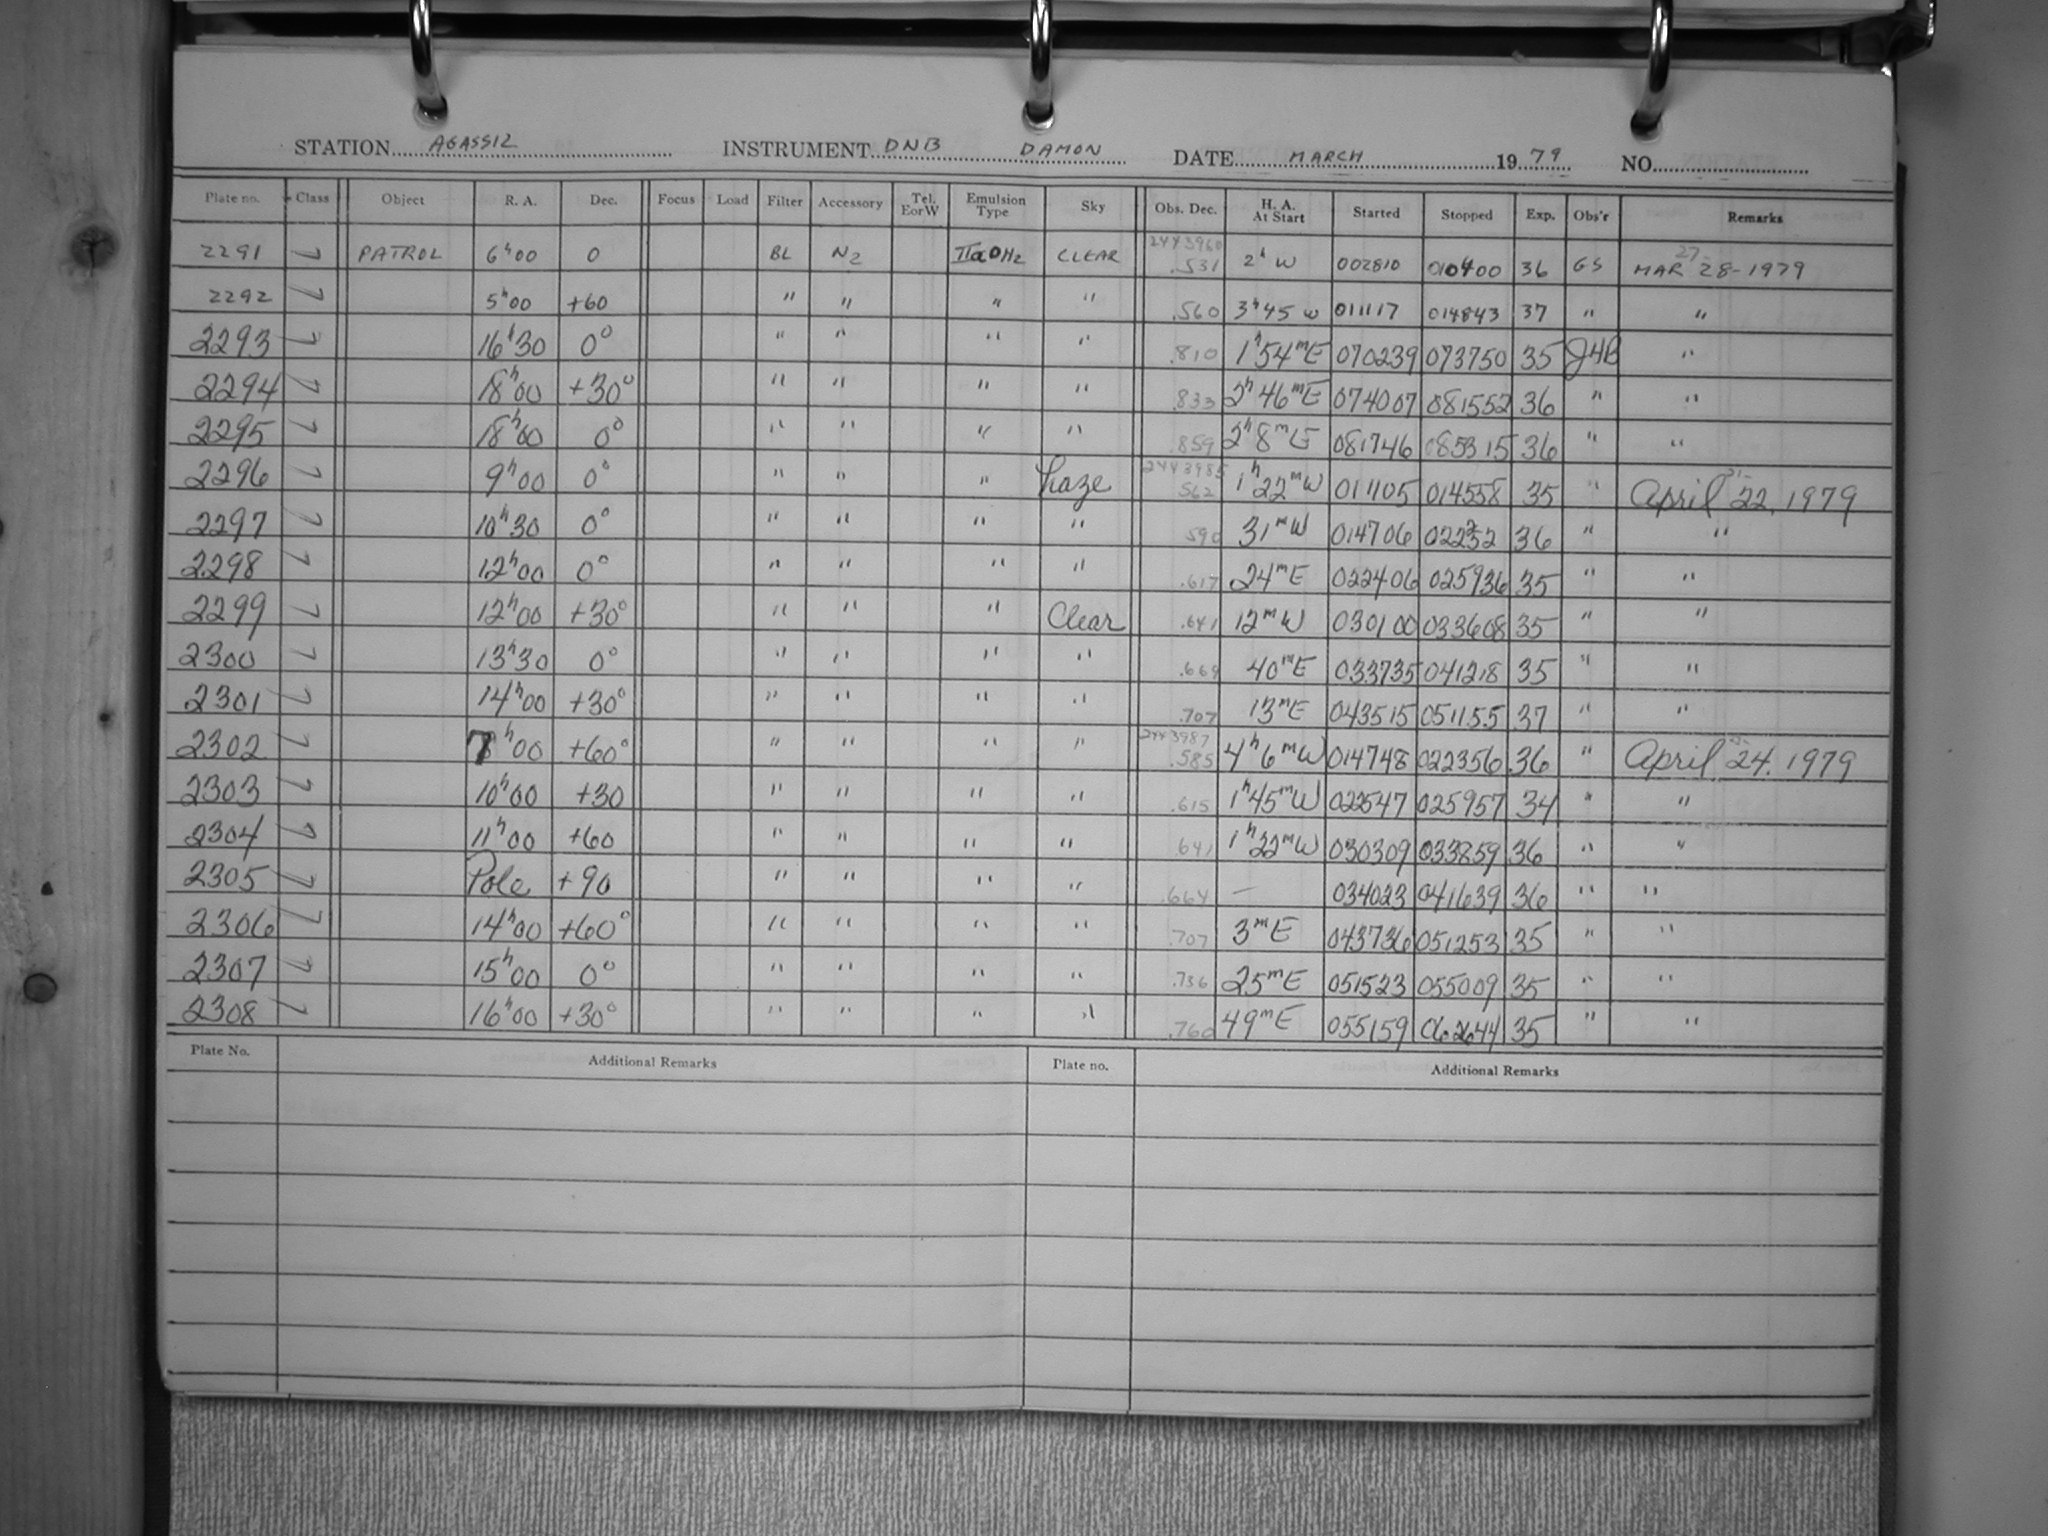 STATION AGASSIZ INSTRUMENT DNB DAMON DATE MARCH 1979 NO.
Plate no. Class Object R. A. Dec. Focus Load Filter Accessory Tel. EorW Emulsion Type Sky Obs. Dec. H. A. At Start Started Stopped Exp. Obs'r Remarks
2291 7 PATROL 6h00 0 BL N2 IIaOH2 CLEAR 2443960 .531 2h W 002810 010400 36 GS MAR 27- 28-1979
2292 7 5h00 +60 " " " " .560 3h45 W 011117 014843 37 " "
2293 7 16h30 0° " " " " .810 1h54mE 070239 073750 35 "
2294 7 18h00 +30° " " " " .833 2h46mE 074007 081552 36 " "
2295 7 18h00 0° " " " " .859 2h8mE 081746 085315 36 " "
2296 7 9h00 0° " " " haze 2443985 562 1h22mW 011105 014558 35 " April 21- 22, 1979
2297 7 10h30 0° " " " " 590 31mW 014706 02232 36 " "
2298 7 12h00 0° " " " " .617 24mE 022406 025936 35 " "
2299 7 12h00 +30° " " " Clear .641 12mW 030100 033608 35 " "
2300 7 13h30 0° " " " " .669 40mE 033735 041218 35 " "
2301 7 14h00 +30° " " " " .707 13mE 043515 051155 37 " "
2302 7 7h00 +60° " " " " 2443987 .585 4h6mW 014748 022356 36 " April 24, 1979
2303 7 10h00 +30 " " " " .615 1h45mW 022547 025957 34 " "
2304 7 11h00 +60 " " " " .641 1h22mW 030309 033859 36 " "
2305 7 Pole +90 " " " " .664 — 034023 041639 36 " "
2306 7 14h00 +60° " " " " .707 3mE 043736 051253 35 " "
2307 7 15h00 0° " " " " .736 25mE 051523 055009 35 " "
2308 7 16h00 +30° " " " " .760 49mE 055159 062644 35 " "
Plate No. Additional Remarks Plate no. Additional Remarks